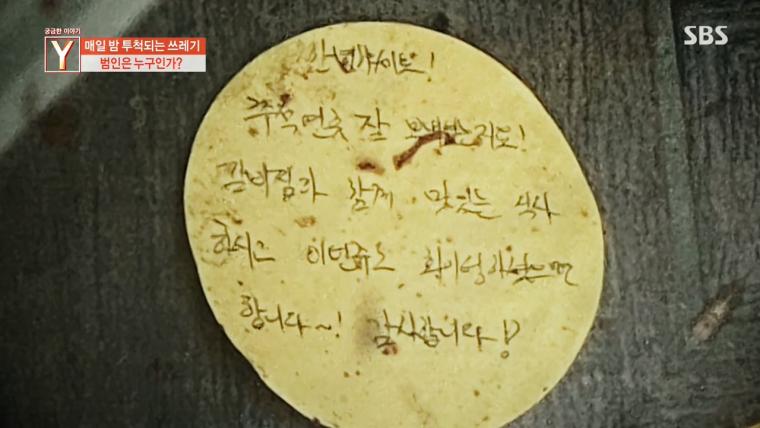 궁금한 이야기
Y
매일 밤 투척되는 쓰레기
범인은 누구인가?
SBS
안녕하세요!
추석연휴 잘 보내셨지요!
함께 맛있는 식사
하시고 이번주도 화이팅하셨으면
합니다~! 감사합니다!